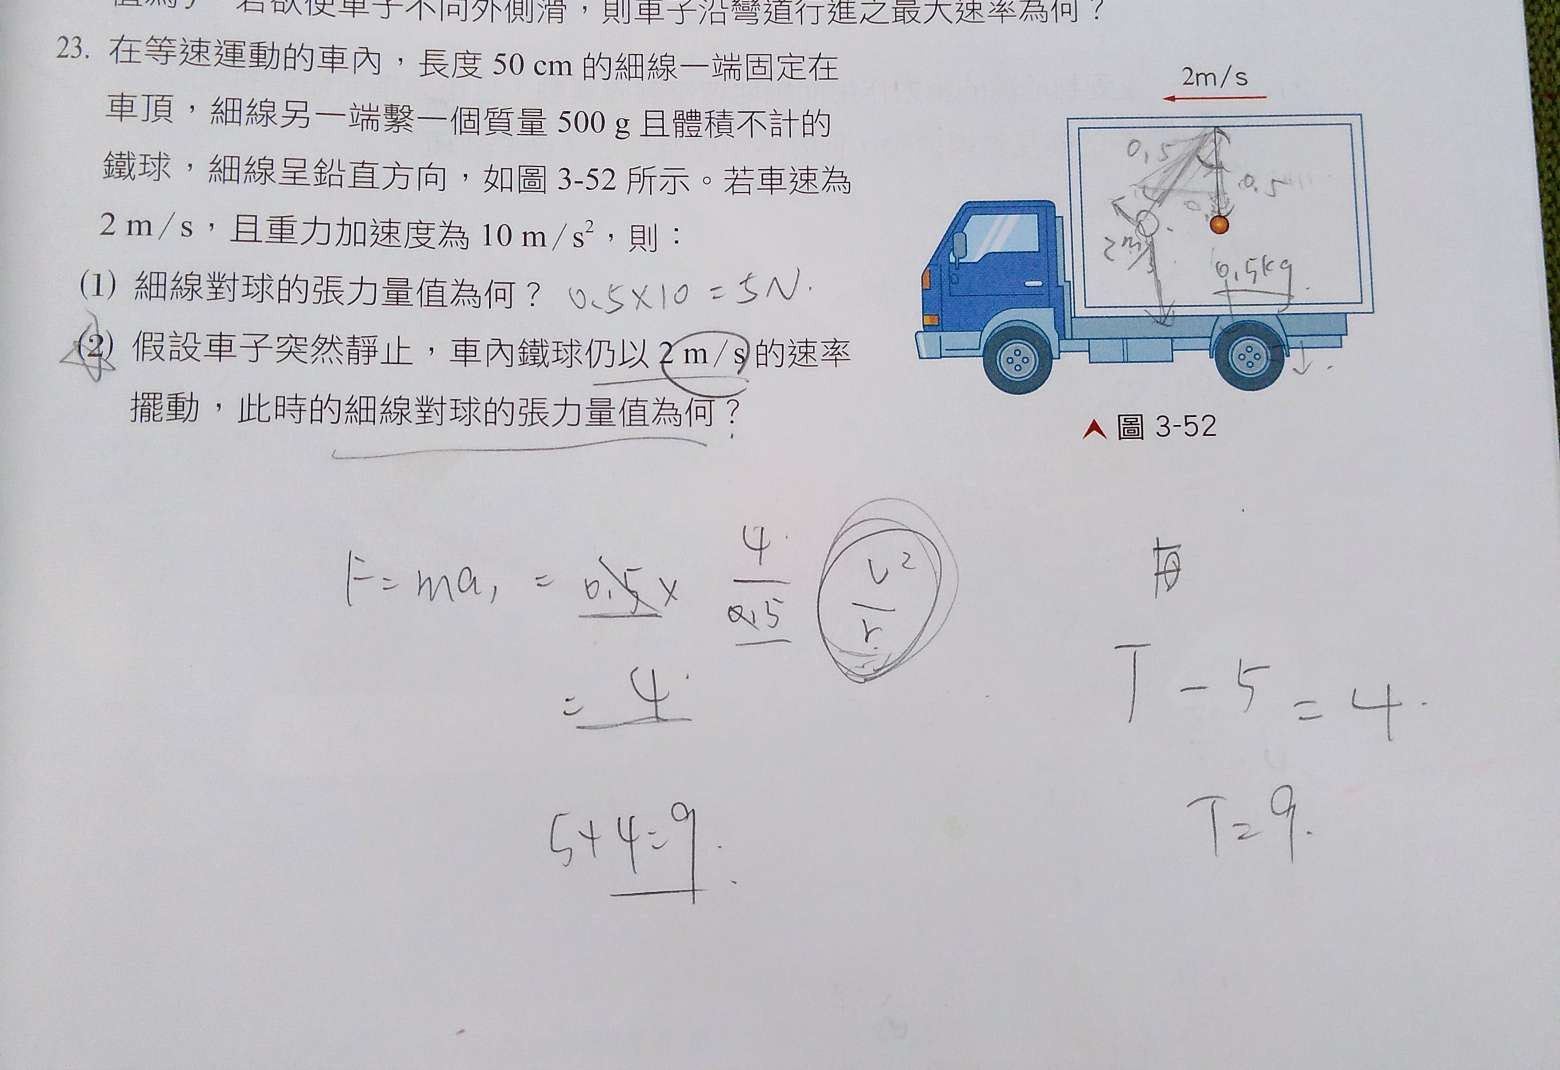 若欲使車子不向外側滑，則車子沿彎道行進之最大速率為何？
23. 在等速運動的車內，長度 50 cm 的細線一端固定在
車頂，細線另一端繫一個質量 500 g 且體積不計的
鐵球，細線呈鉛直方向，如圖 3-52 所示。若車速為
2 m/s，且重力加速度為 10 m/s²，則：
(1) 細線對球的張力量值為何？ 0.5×10=5N.
(2) 假設車子突然靜止，車內鐵球仍以 2 m/s 的速率
擺動，此時的細線對球的張力量值為何？
2m/s
0.5
0.5
2m/s
0.5kg
圖 3-52
F=ma, = 0.5× 4/0.5 v²/r
= 4
5+4=9.
T-5=4.
T=9.